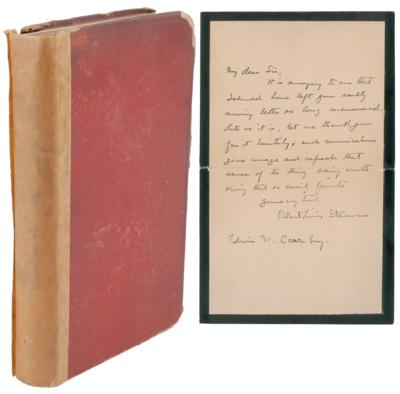 My dear Sir,
It is annoying to me that
I should have left your really
moving letter so long unanswered.
Late as it is, let me thank you
for it heartily; such communications
give courage and refresh that
sense of the thing being worth
doing that so easily faints.
Yours very truly
Robert Louis Stevenson
Edwin W. Coar Esq.